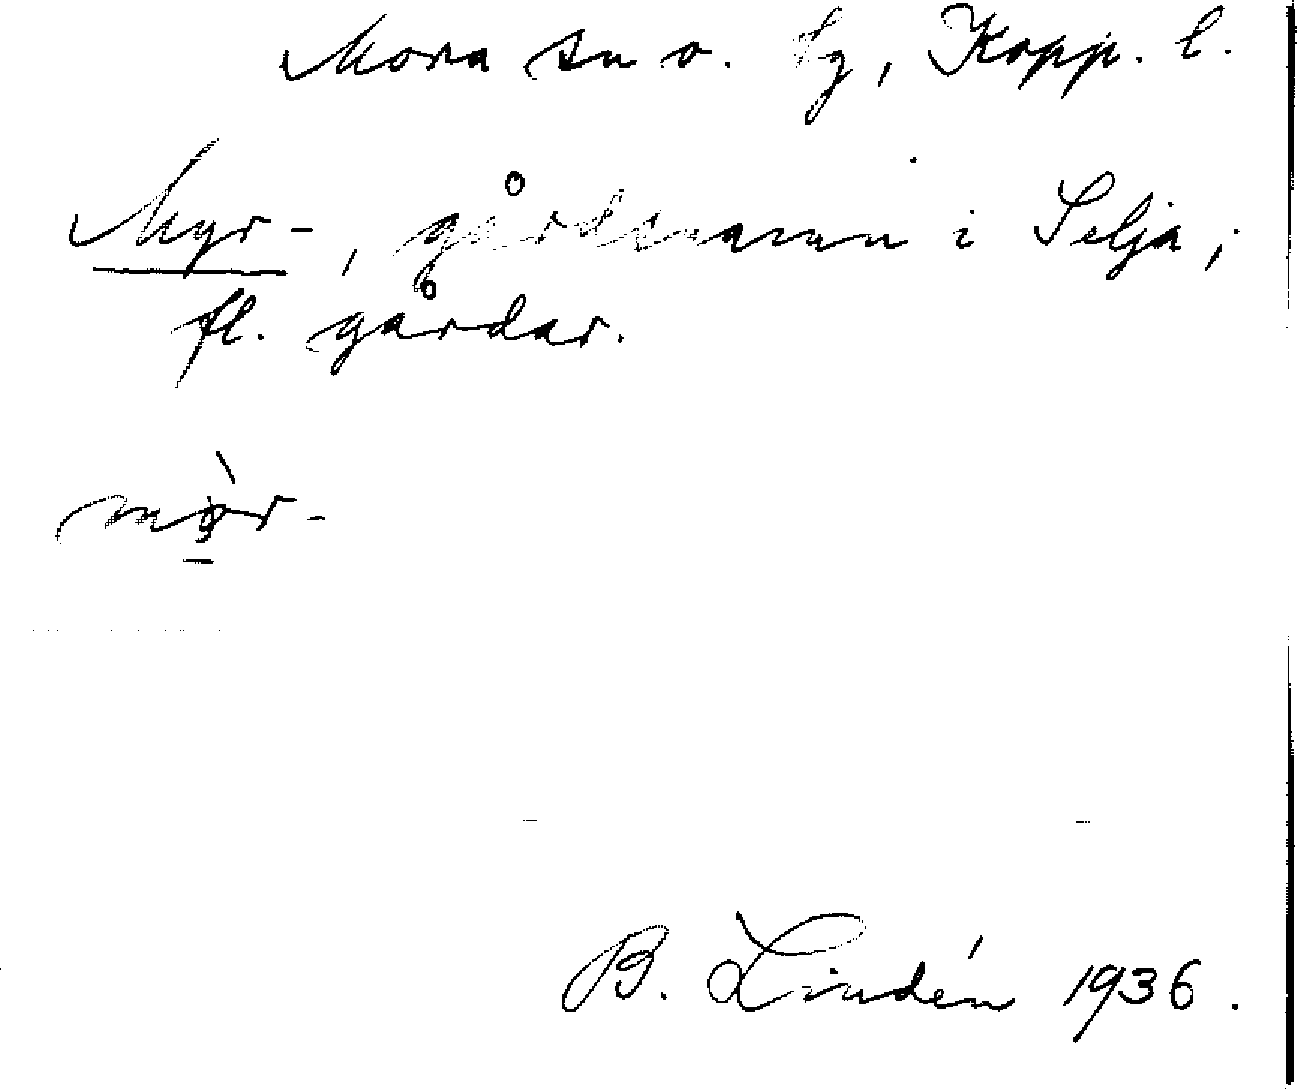 Mora sn o. tg, Kopp. l.
Myr-, gårdsnamn i Selja;
fl. gårdar.
B. Lindén 1936.